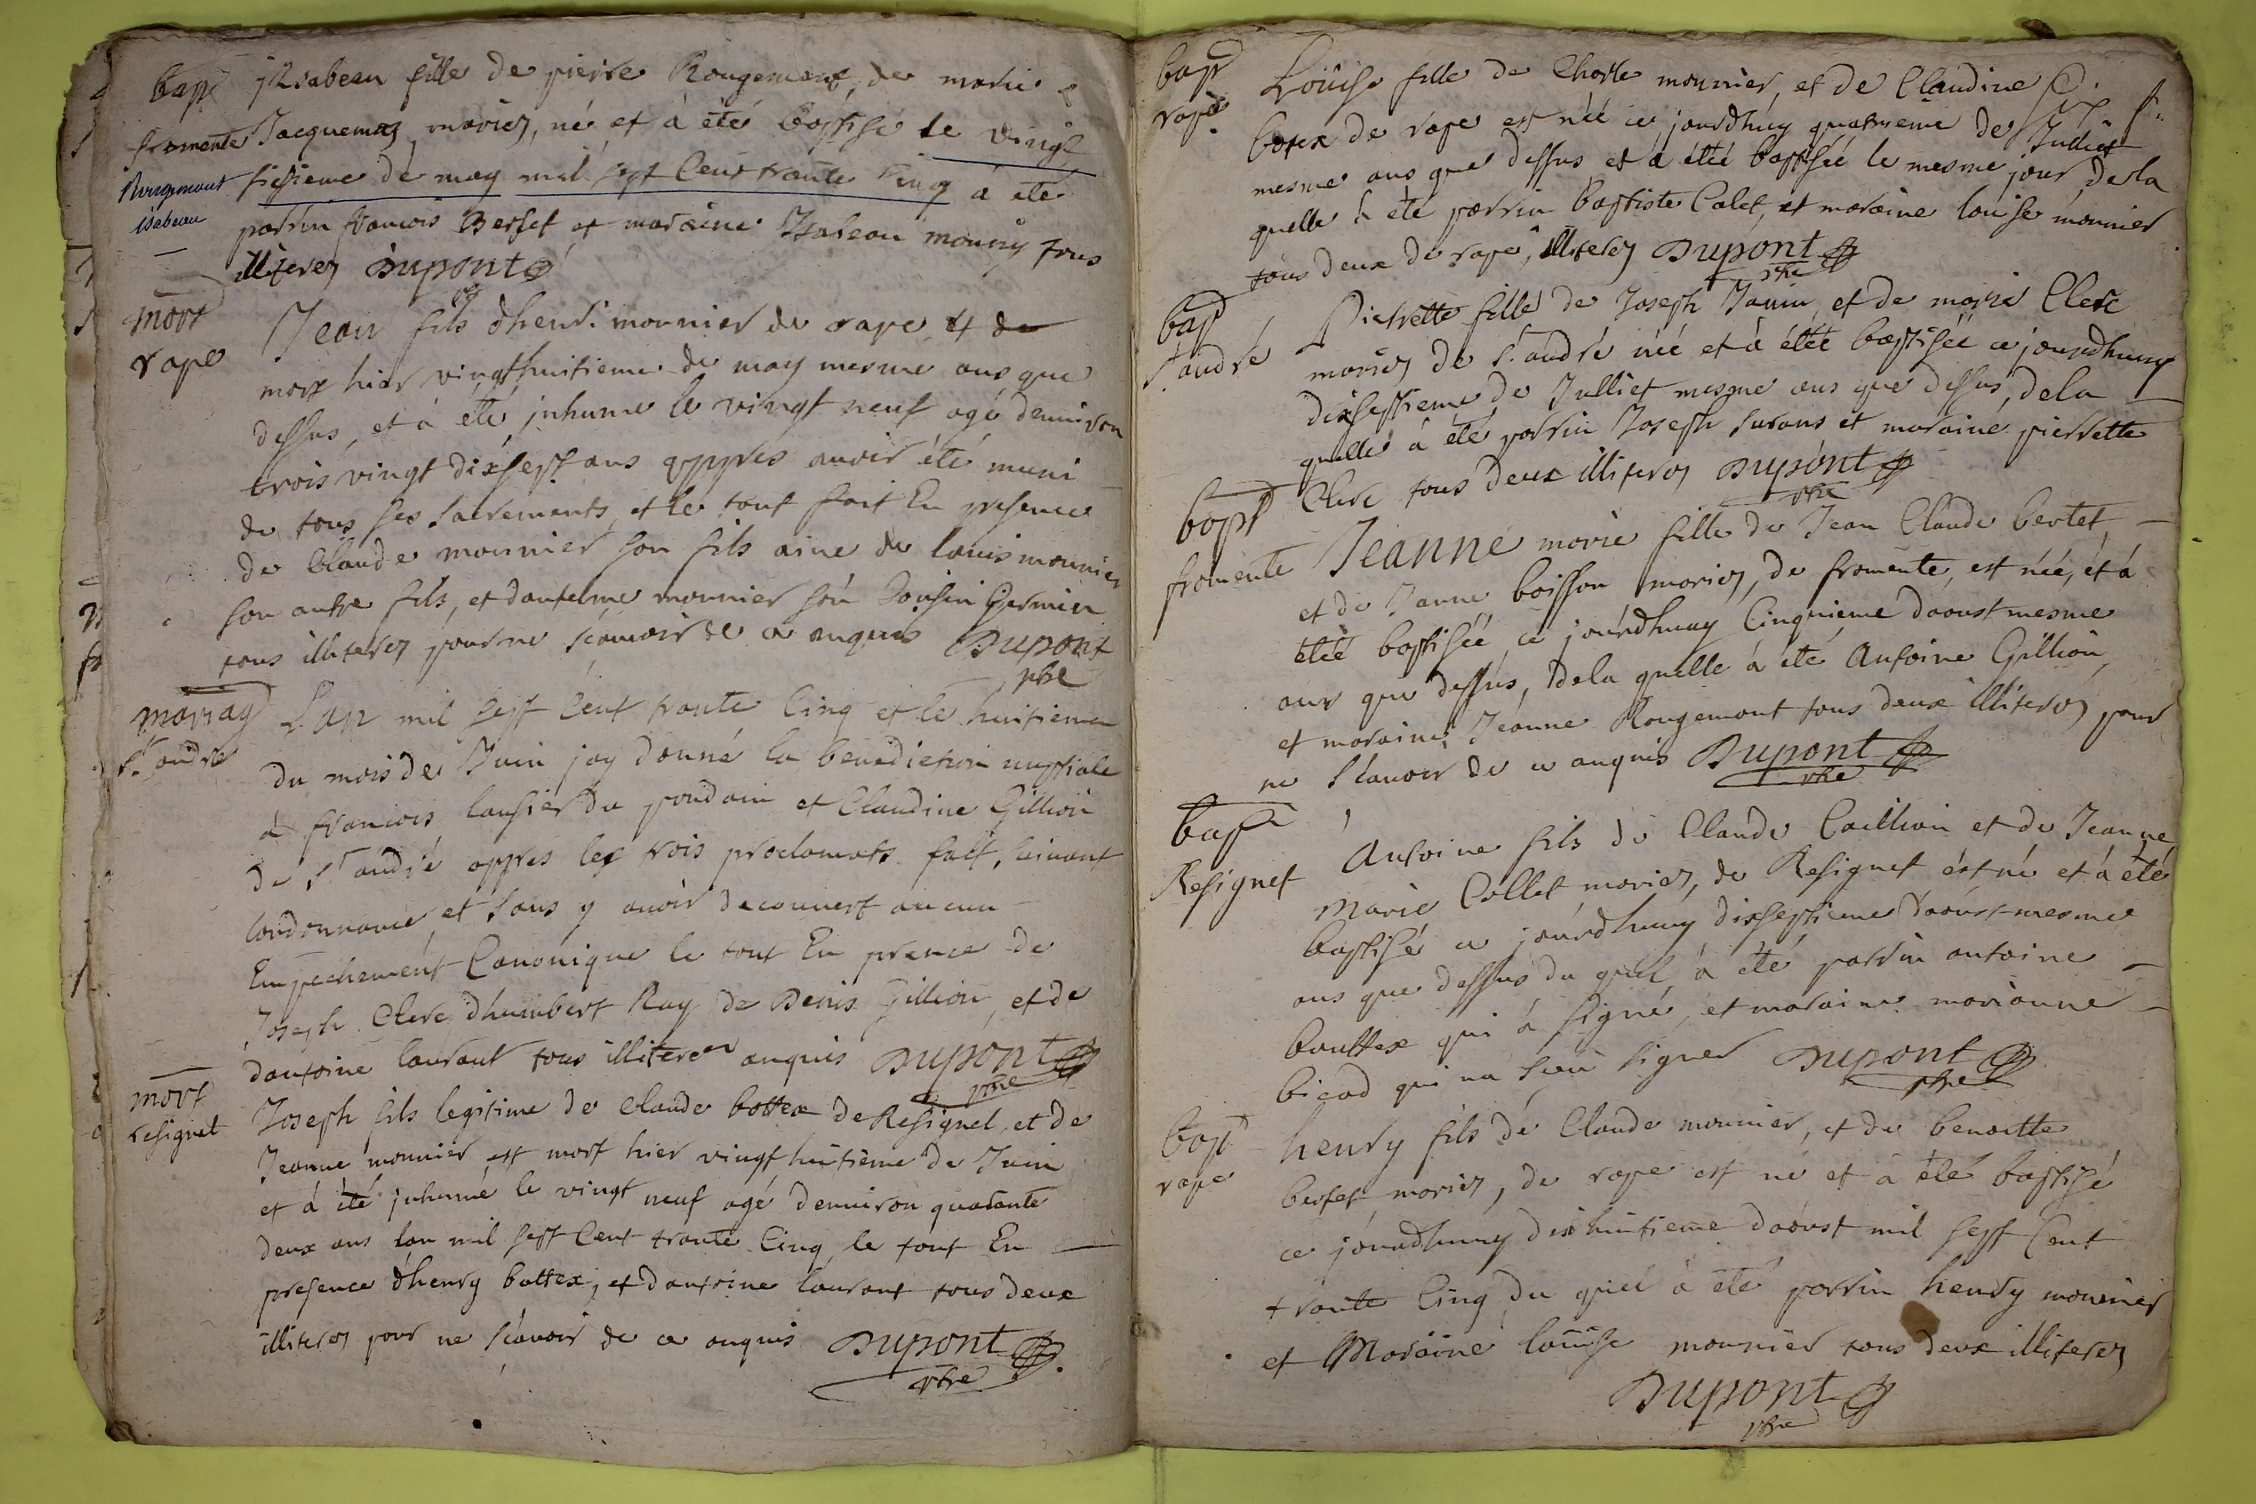 bap jsabeau fille de pierre Rougemont, de marie
fromente Jacquemas mariez, né et à été baptisé le vingt
Rougemont
isabeau
sisieme de may mil sept Cent trante Cinq à été
parrin francois Berset et maraine Isabeau mouny tous
illiterez Dupont
mort
rape
Jean fils dhenri monnier de rape et de
mort hier vingthuitieme de may mesme ans que
dessus, et à été jnhume le vingt neuf agé denviron
trois vingt dixsept ans appres avoir été muni
de tous ses sacrements, et le tout fait En presence
de Claude monnier son fils aine de louis monnier
son autre fils, et dantelme monnier son Cousin Germin
tous illiterez pour ne scavoir de ce enquis Dupont
pbre
mariag
St andré
L'an mil sept Cent trante Cinq et le huitieme
du mois de Juin jay donné la benediction nuptiale
à francois lausier du pondain et Claudine Gillion
de St andré appres les trois proclamats fait, suivant
lordonnance, et sans y avoir decouvert aucun
Empechement Canonique le tout En prence de
Joseph Clerc dhumbert Ray de Denis Gillion, et de
dantoine laurant tous illiterez enquis Dupont
pbre
mort
resignet
Joseph fils legitime de Claude bottex de Resignel, et de
Jeanne monnier est mort hier vingt huitieme de Juin
et à été jnhumé le vingt neuf agé denviron quarante
deux ans lan mil sept Cent trante Cinq le tout En
presence dhenry bottex, et dantoine laurant tous deux
illiterez pour ne scavoir de ce enquis Dupont
pbre
bap
rape
Loüise fille de Charle monnier, et de Claudine
botex de rape est née ce jourdhuy quatrieme de Julliet
mesme ans que dessus et à étée baptisée le mesme jour, dela
quelle à été parrin baptiste Calet, et maraine louise monnier
tous deux de rape, illiterez Dupont
pbre
bap
St andré
Pierrette fille de Joseph Janin, et de marie Clerc
mariez de St andré née et à étée baptisée ce jourdhuy
dixseptieme de Julliet mesme ans que dessus, dela
quelle à été parrin Joseph Surans et maraine pierrette
Clerc tous deux illiterez Dupont
pbre
bapt
fromente
Jeanne marie fille de Jean Claude bertet
et de Janne boisson mariez, de fromente, est née, et à
étée baptisée ce jourdhuy Cinquieme daoust mesme
ans que dessus, dela quelle à été Antoine Gillion,
et maraine Jeanne Rougemont tous deux illiterez pour
ne scavoir de ce enquis Dupont
pbre
bap
Resignet
Antoine fils de Claude Caillion et de Jeanne
Marie Collet mariez, de Resignet est né et à été
baptisé ce jourdhuy dixseptieme daoust mesme
ans que dessus du quel à été parrin antoine
bouttex qui à signé, et maraine marianne
bicod qui na sceu signer Dupont
pbre
bap
rape
henry fils de Claude monnier, et de benoitte
berset, mariez, de rape est né et à été baptisé
ce jourdhuy dixhuitieme daoust mil sept Cent
trante Cinq du quel à été parrin henry monnier
et Maraine loüise monnier tous deux illiterez
Dupont
pbre